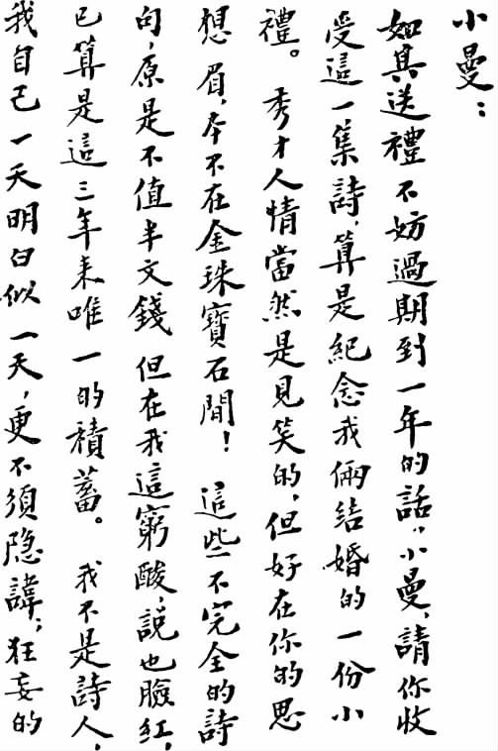 小曼：
如其送禮不妨過期到一年的話，小曼，請你收
受這一集詩，算是紀念我倆結婚的一份小
禮。秀才人情當然是見笑的，但好在你的思
想，眉，本不在金珠寶石間！這些不完全的詩
句，原是不值半文錢，但在我這窮酸，說也臉紅，
已算是這三年來唯一的積蓄。我不是詩人，
我自己一天明白似一天，更不須隐諱；狂妄的